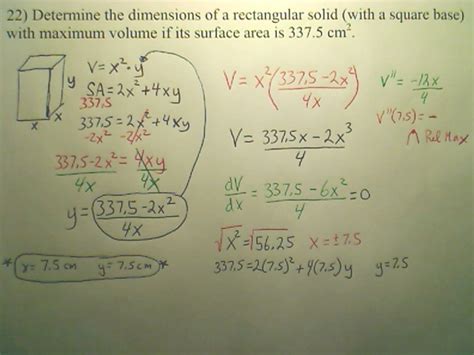 22) Determine the dimensions of a rectangular solid (with a square base)
with maximum volume if its surface area is 337.5 cm².
y
x
x
V = x² · y
SA = 2x² + 4xy
337.5
337.5 = 2x² + 4xy
-2x² -2x²
337.5 - 2x² = 4xy
4x 4x
y = 337.5 - 2x²
4x
* x = 7.5 cm y = 7.5 cm *
V = x² (337.5 - 2x²)
4x
V = 337.5x - 2x³
4
dV = 337.5 - 6x² = 0
dx 4
√x² = √56.25 x = ± 7.5
337.5 = 2(7.5)² + 4(7.5)y y = 7.5
V'' = -12x
4
V''(7.5) = -
Rel Max